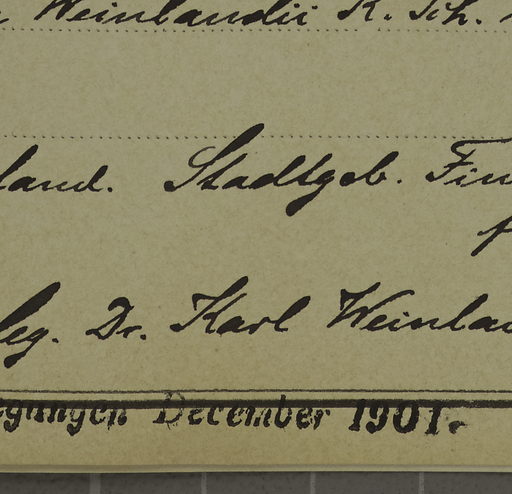 Weinlandii K. Sch.
land. Stadtgeb. Fin
leg. Dr. Karl Weinlan
egungen December 1901.